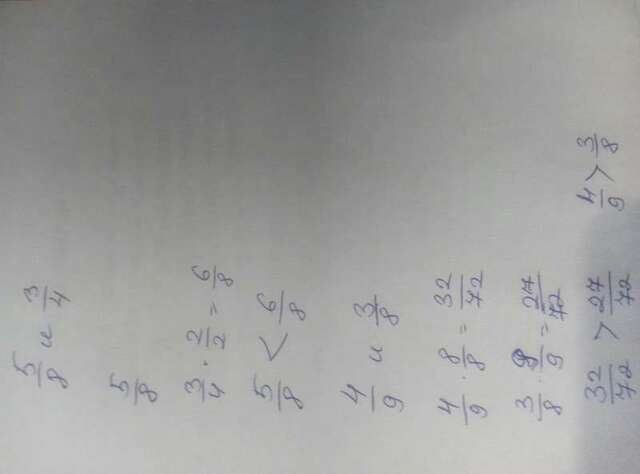 5/8 и 3/4
5/8
3/4 · 2/2 = 6/8
5/8 < 6/8
4/9 и 3/8
4/9 · 8/8 = 32/72
3/8 · 9/9 = 27/72
32/72 > 27/72 4/9 > 3/8